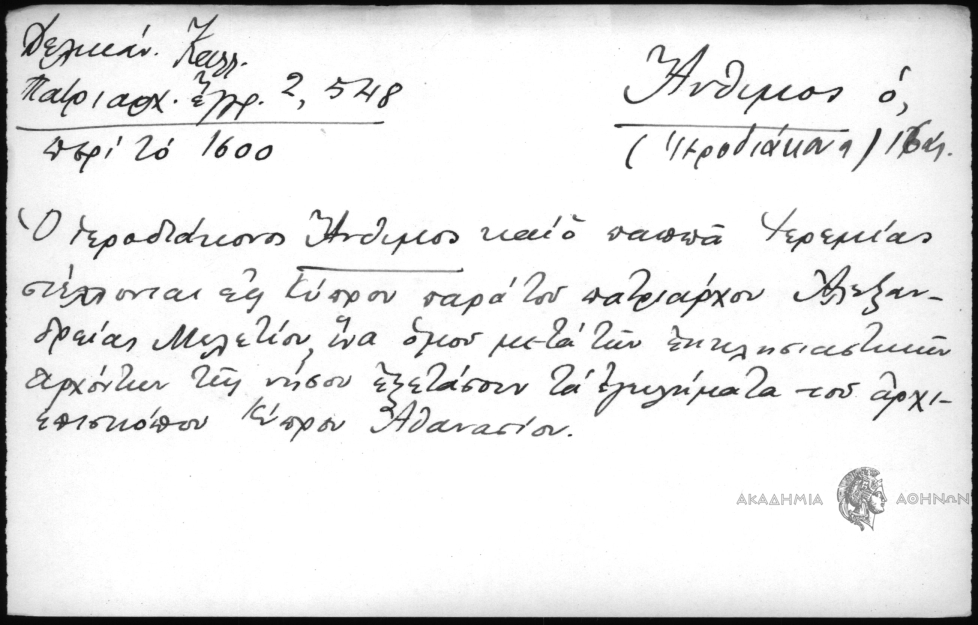 Δελικάν. Καλλ.
Πατριαρχ. Ἔγγρ. 2, 548
περί τό 1600
Ἄνθιμος ὁ,
(Ἱεροδιάκονος) 16 αἰ.
Ὁ ἱεροδιάκονος Ἄνθιμος καί ὁ παππᾶ Ἱερεμίας
στέλλονται εἰς Κύπρον παρά τοῦ πατριάρχου Ἀλεξαν-
δρείας Μελετίου, ἵνα ὁμοῦ μετά τῶν ἐκκλησιαστικῶν
ἀρχόντων τῆς νήσου ἐξετάσουν τά ἐγκλήματα τοῦ ἀρχι-
επισκόπου Κύπρου Ἀθανασίου.
ΑΚΑΔΗΜΙΑ ΑΘΗΝΩΝ